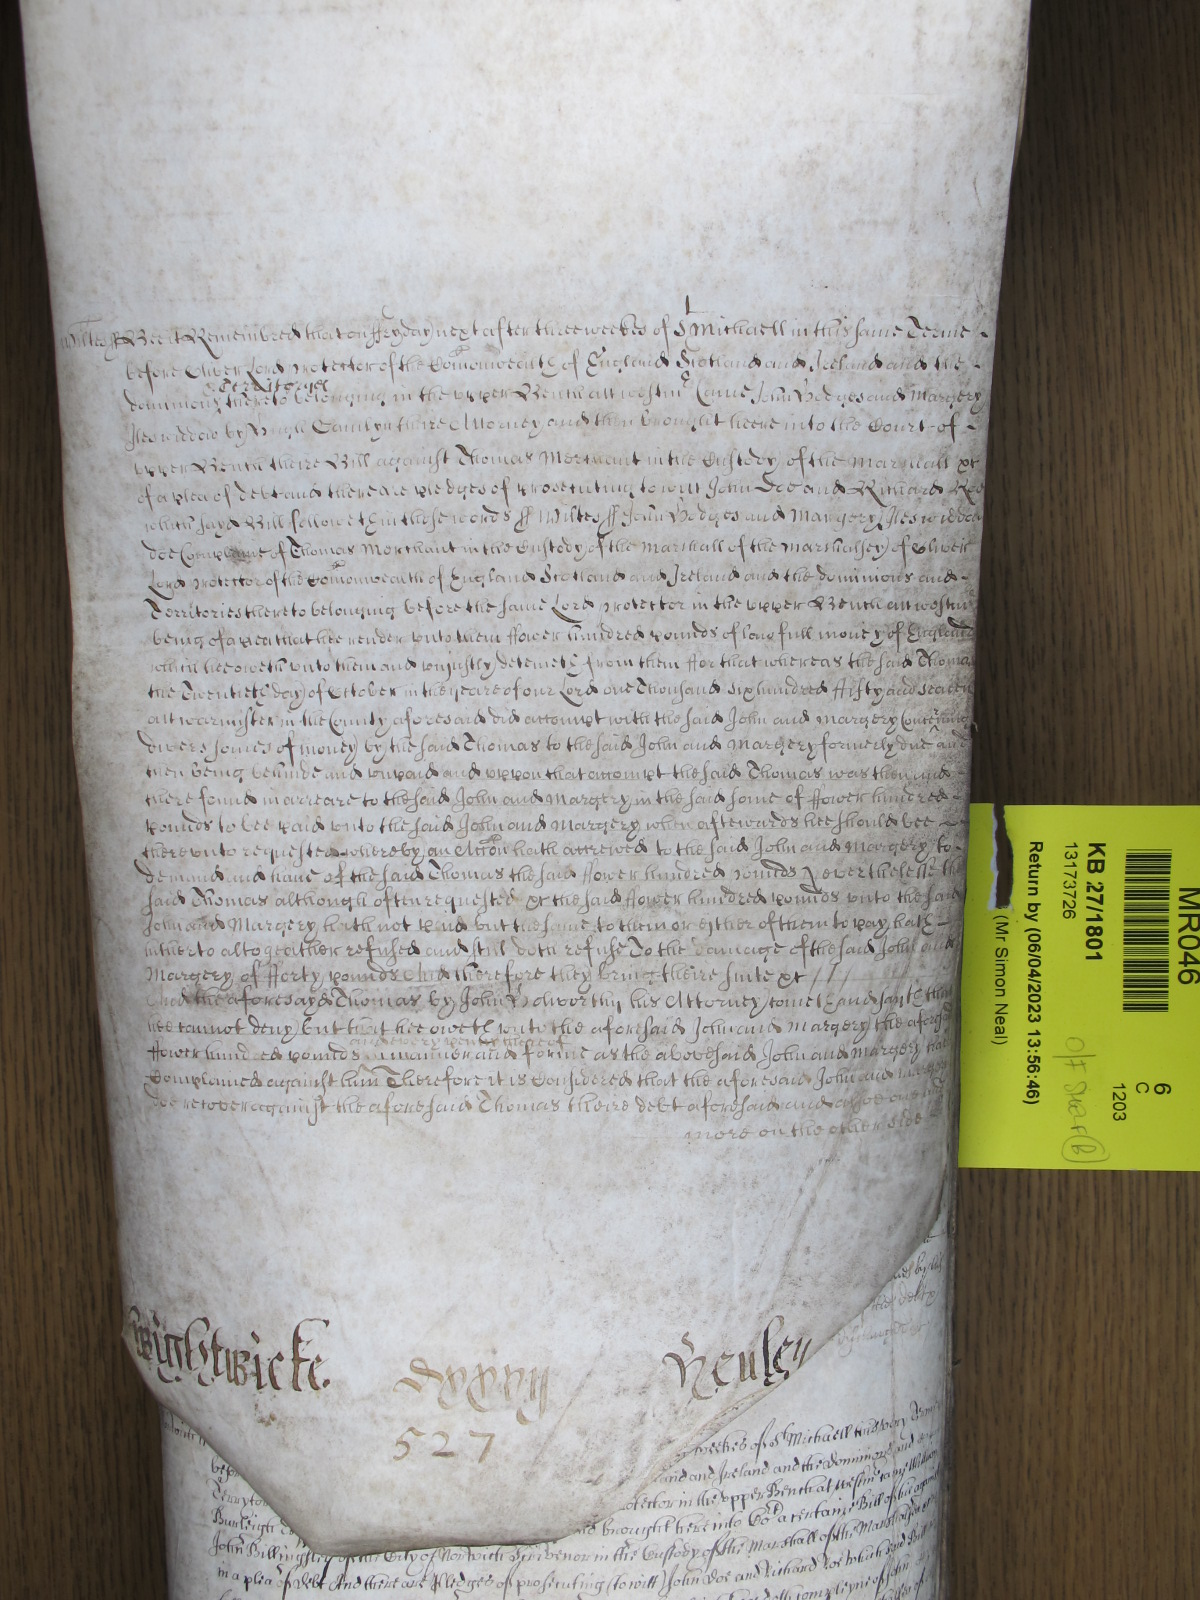 Wiltes ff Bee it Remembred that on ffryday next after three weekes of St Michaell in this same Terme
before Oliver Lord Protector of the Comonwealth of England Scotland and Ireland and the
Territories
dominions thereto belonging in the upper Bench att Westmr Came John Hodges and Margery
Iles widdow by Hugh Camlyn theire Attorney and then brought heere into the Court of
upper Bench theire Bill against Thomas Merchant in the Custody of the Marshall &c
of a plea of debt and there are pledges of prosecuting to witt John Doe and Richard Roe
which sayd Bill followeth in these words ff Wiltes ff John Hodges and Margery Iles widdow
doe Complaine of Thomas Merchant in the Custody of the Marshall of the Marshalsey of Oliver
Lord Protector of the Comonwealth of England Scotland and Ireland and the dominions and
Territories thereto belonging before the same Lord Protector in the upper Bench att Westmr
being of a plea that hee render unto them ffower hundred pounds of lawfull money of England
which hee oweth unto them and uniustly deteineth from them ffor that whereas the said Thomas
the Twentieth day of October in the yeare of our Lord one Thousand Six hundred ffifty and Seaven
att Warmister in the County aforesaid did accompt with the said John and Margery Concerning
divers somes of money by the said Thomas to the said John and Margery formerly due and
then being behinde and unpaid and uppon that accompt the said Thomas was then and
there found in arreare to the said John and Margery in the said some of ffower hundred
pounds to bee paid unto the said John and Margery when aftewards hee should bee
thereunto requested whereby an Accon hath accrewed to the said John and Margery to
demand and have of the said Thomas the said ffower hundred pounds Neverthelesse the
said Thomas although often requested &c the said ffower hundred pounds unto the said
John and Margery hath not paid but the same to them or either of them to pay hath
hitherto altogeather refused and still doth refuse To the damage of the said John and
Margery of fforty pounds And therefore they bring theire suite &c
And the aforesayd Thomas by John Holworthy his Attorney cometh and sayth that
hee cannot deny but that hee oweth unto the aforesaid John and Margery the aforesd
and every penny thereof
ffower hundred pounds in manner and forme as the abovesaid John and Margery have
Complained against him Therefore it is Considered that the aforesaid John and Margery
doe recover against the aforesaid Thomas theire debt aforesaid and alsoe
more on the other side
Wightwicke
dxxvij
Henley
527
weekes of St Michaell this very Terme
land and Ireland and the dominions and
Terryto
otector in the upper Bench at Westmr came William
Burleigh
brought here into Cort a certaine Bill of his against
John Billingsley of the City of Norwich in the Custody of the Marshall of the Marshalsea
in a plea of debt And there are Pledges of prosecuting (to witt) John Doe and Richard Roe which said Bill
complayne of John
MR046
KB 27/1801
13173726
Return by (06/04/2023 13:56:46)
(Mr Simon Neal)
6
C
1203
O/F Shelf (B)